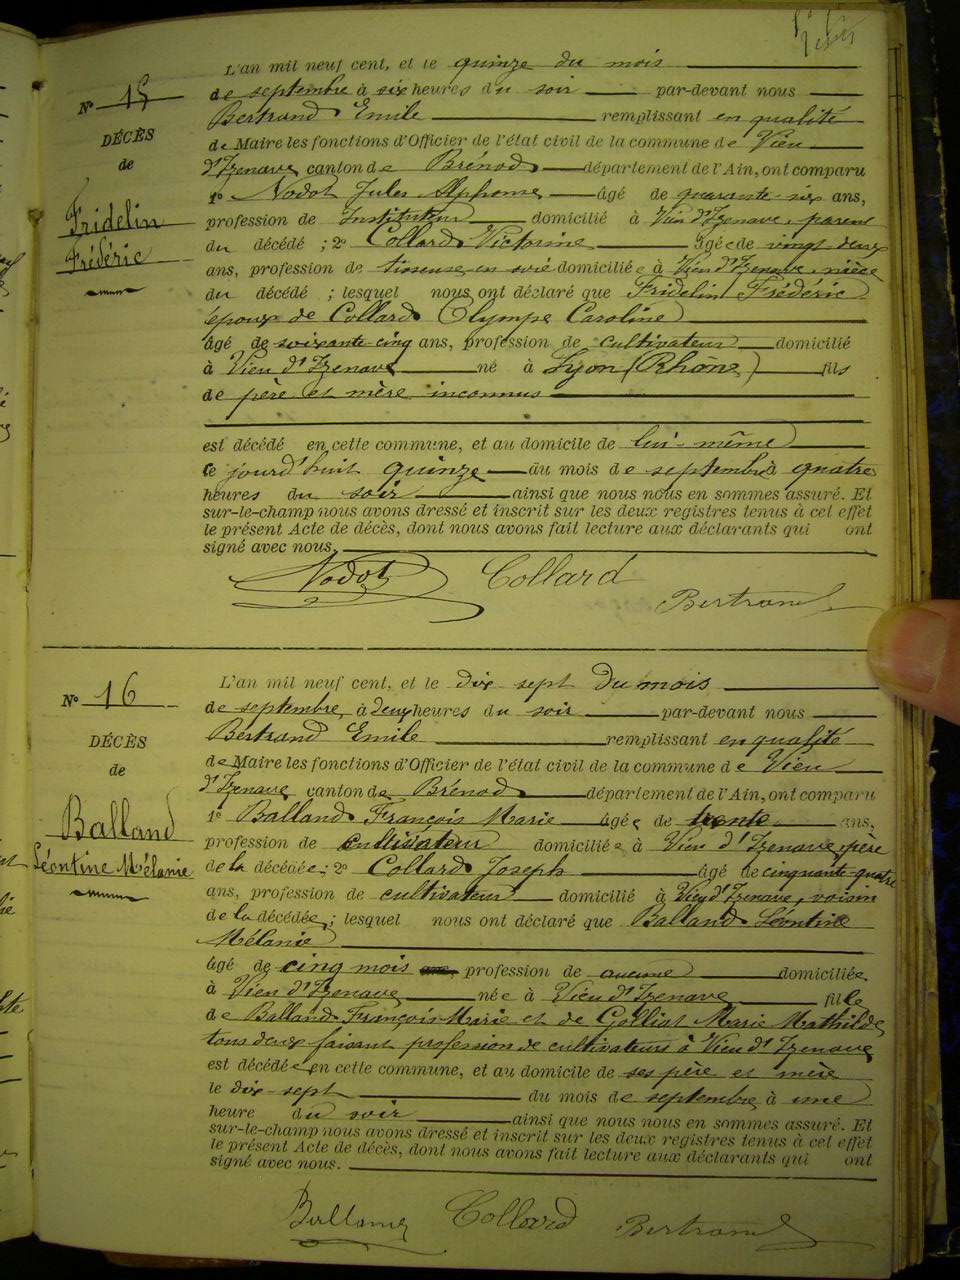 L'an mil neuf cent, et le quinze du mois
Nº 15
de septembre à six heures du soir par-devant nous
Bertrand Emile remplissant en qualité
DÉCÈS
de Maire les fonctions d'Officier de l'état civil de la commune de Vieu
de
d'Izenave canton de Brénod département de l'Ain, ont comparu
1º Nodot Jules Alphonse âgé de quarante-six ans,
Fridelin
profession de instituteur domicilié à Vieu d'Izenave, parent
Frédéric
du décédé ; 2º Collard Victorine âgée de vingt deux
ans, profession de tisseuse en soie domiciliée à Vieu d'Izenave, nièce
du décédé ; lesquel nous ont déclaré que Fridelin Frédéric
époux de Collard Olympe Caroline
âgé de soixante-cinq ans, profession de cultivateur domicilié
à Vieu d'Izenave né à Lyon (Rhône) fils
de père et mère inconnus
est décédé en cette commune, et au domicile de lui-même
ce jourd'huit quinze du mois de septembre à quatre
heures du soir ainsi que nous nous en sommes assuré. Et
sur-le-champ nous avons dressé et inscrit sur les deux registres tenus à cet effet
le présent Acte de décès, dont nous avons fait lecture aux déclarants qui ont
signé avec nous.
Nodot Collard Bertrand
L'an mil neuf cent, et le dix sept du mois
Nº 16
de septembre, à deux heures du soir par-devant nous
Bertrand Emile remplissant en qualité
DÉCÈS
de Maire les fonctions d'Officier de l'état civil de la commune de Vieu
de
d'Izenave canton de Brénod département de l'Ain, ont comparu
1º Balland François Marie âgé de trente ans,
Balland
profession de cultivateur domicilié à Vieu d'Izenave, père
Léontine Mélanie
de la décédée ; 2º Collard Joseph âgé de cinquante-quatre
ans, profession de cultivateur domicilié à Vieu d'Izenave, voisin
de la décédée ; lesquel nous ont déclaré que Balland Léontine
Mélanie
âgé de cinq mois ans, profession de aucune domiciliée
à Vieu d'Izenave née à Vieu d'Izenave fille
de Balland François Marie et de Golliat Marie Mathilde
tous deux faisant profession de cultivateurs à Vieu d'Izenave
est décédée en cette commune, et au domicile de ses père et mère
le dix-sept du mois de septembre à une
heure du soir ainsi que nous nous en sommes assuré. Et
sur-le-champ nous avons dressé et inscrit sur les deux registres tenus à cet effet
le présent Acte de décès, dont nous avons fait lecture aux déclarants qui ont
signé avec nous.
Balland Collard Bertrand